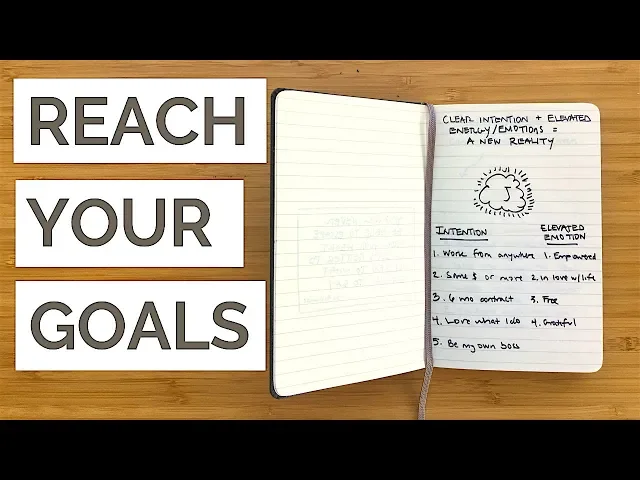 REACH
YOUR
GOALS
CLEAR INTENTION + ELEVATED
ENERGY/EMOTIONS =
A NEW REALITY
J
INTENTION
1. Work from anywhere
2. Same $ or more
3. 6 mo contract
4. Love what I do
5. Be my own boss
ELEVATED
EMOTION
1. Empowered
2. in love w/ life
3. Free
4. Grateful